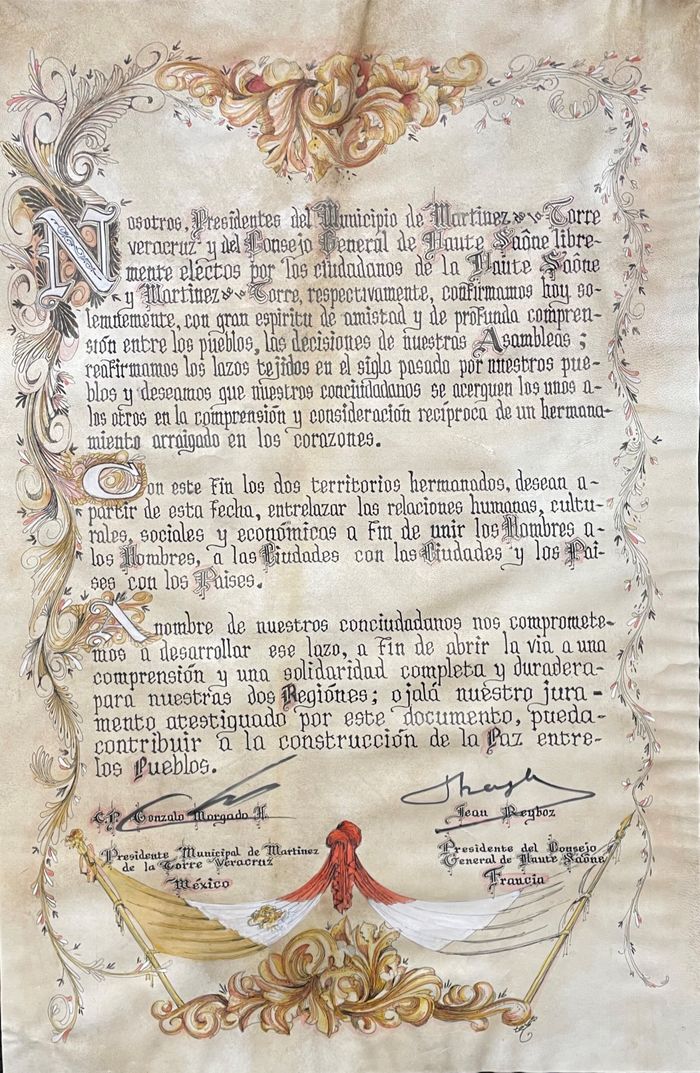 Nosotros, Presidentes del Municipio de Martinez de la Torre
veracruz y del Consejo General de Haute Saône libre-
mente eléctos por los ciudadanos de la Haute Saône
y Martinez de la Torre, respectivamente, confirmamos hoy so-
lemnemente, con gran espiritu de amistad y de profunda compren-
sión entre los pueblos, las decisiones de nuestras Asambleas;
reafirmamos los lazos tejidos en el siglo pasado por nuestros pue-
blos y deseamos que nuestros conciudadanos se acerquen los unos a-
los otros en la comprensión y consideración recíproca de un hermana-
miento arraigado en los corazones.
Con este Fin los dos territorios hermanados, desean a-
partir de esta fecha, entrelazar las relaciones humanas, cultu-
rales, sociales y económicas a Fin de unir los Hombres a-
los Hombres, a las Ciudades con las Ciudades y los Pai-
ses con los Paises.
A nombre de nuestros conciudadanos nos compromete-
mos a desarrollar ese lazo, a Fin de abrir la via a una
comprensión y una solidaridad completa y duradera-
para nuestras dos Regiónes; ojalá nuéstro jura-
mento atestiguado por este documento, pueda-
contribuir a la construcción de la Paz entre-
los Pueblos.
C.P. Gonzalo Morgado H.
Jean Reyboz
Presidente Municipal de Martinez
de la Torre Veracruz
México
Presidente del Consejo
General de Haute Saône
Francia